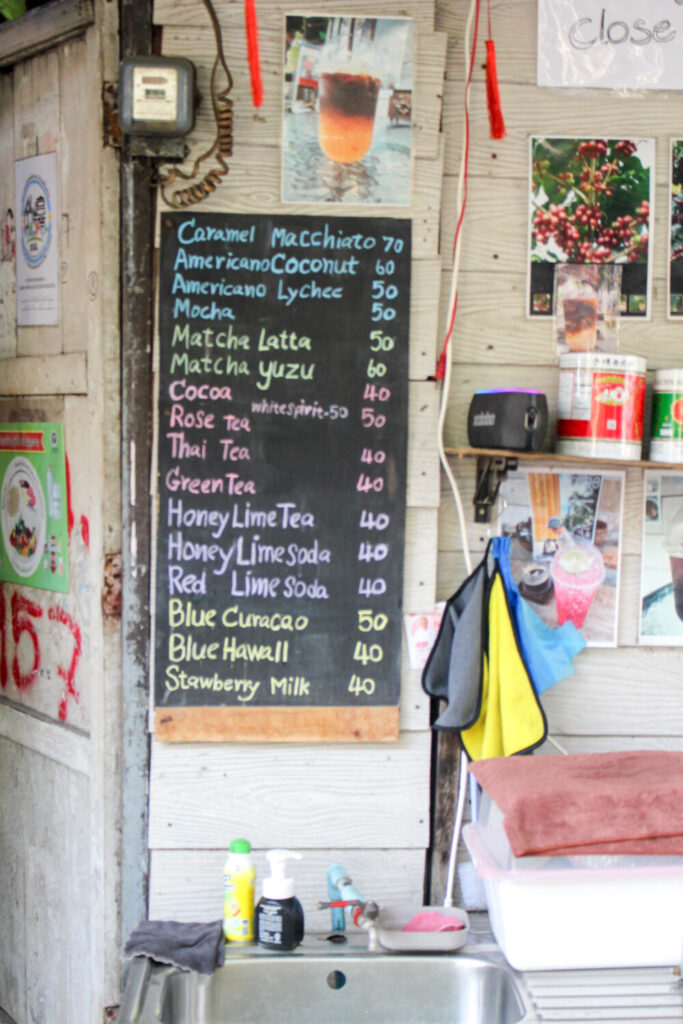 close
Caramel Macchiato 70
Americano Coconut 60
Americano Lychee 50
Mocha 50
Matcha Latta 50
Matcha yuzu 60
Cocoa 40
white spirit.50
Rose Tea 50
Thai Tea 40
Green Tea 40
Honey Lime Tea 40
Honey Lime soda 40
Red Lime soda 40
Blue Curacao 50
Blue Hawall 40
Stawberry Milk 40
157